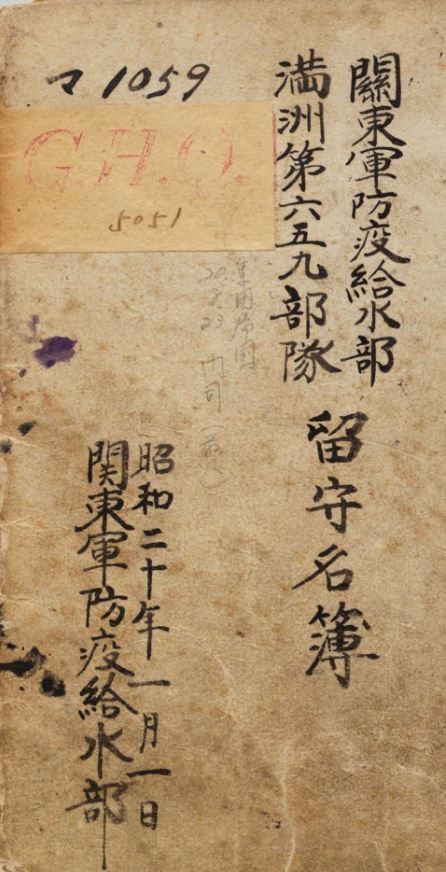 マ1059
G.H.Q.
5051
關東軍防疫給水部
満洲第六五九部隊
留守名簿
昭和二十年一月一日
関東軍防疫給水部